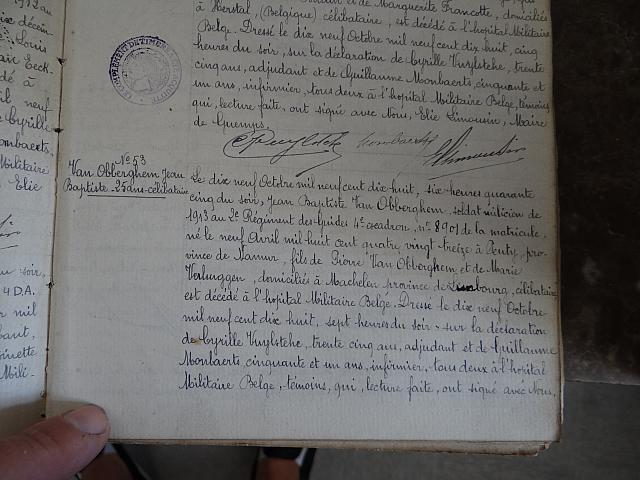 1912 au
dix décem-
Louis
Eeck-
dé à
neuf
Cyrille
Monbaerts,
Militaire
Elie
soir,
4 D.A.
mil
bant,
toinette
Mili-
et de Marguerite Francotte, domiciliés
à Herstal, (Belgique) célibataire, est décédé à l'hopital Militaire
Belge. Dressé le dix neuf Octobre mil neuf cent dix huit, cinq
heures du soir, sur la déclaration de Cyrille Vuylsteke, trente
cinq ans, adjudant et de Guillaume Monbaerts, cinquante et
un ans, infirmier, tous deux à l'hopital Militaire Belge, témoins
qui, lecture faite, ont signé avec Nous, Elie Limousin, Maire
de Guemps.
CVuylsteke Monbaerts Limousin
N° 53
Van Obberghem Jean
Baptiste - 25 ans - célibataire
Le dix neuf Octobre mil neuf cent dix-huit, six heures quarante
cinq du soir, Jean Baptiste Van Obberghem, soldat milicien de
1913 au 2e Régiment des Guides 4e escadron, n° 8901 de la matricule,
né le neuf Avril mil huit cent quatre vingt-treize à Peuty, pro-
vince de Namur, fils de Pierre Van Obberghem et de Marie
Verbruggen, domiciliés à Machelen province de Limbourg, célibataire
est décédé à l'hopital Militaire Belge. Dressé le dix neuf Octobre
mil neuf cent dix huit, sept heures du soir, sur la déclaration
de Cyrille Vuylsteke, trente cinq ans, adjudant et de Guillaume
Monbaerts, cinquante et un ans, infirmier, tous deux à l'hopital
Militaire Belge, témoins, qui, lecture faite, ont signé avec Nous,